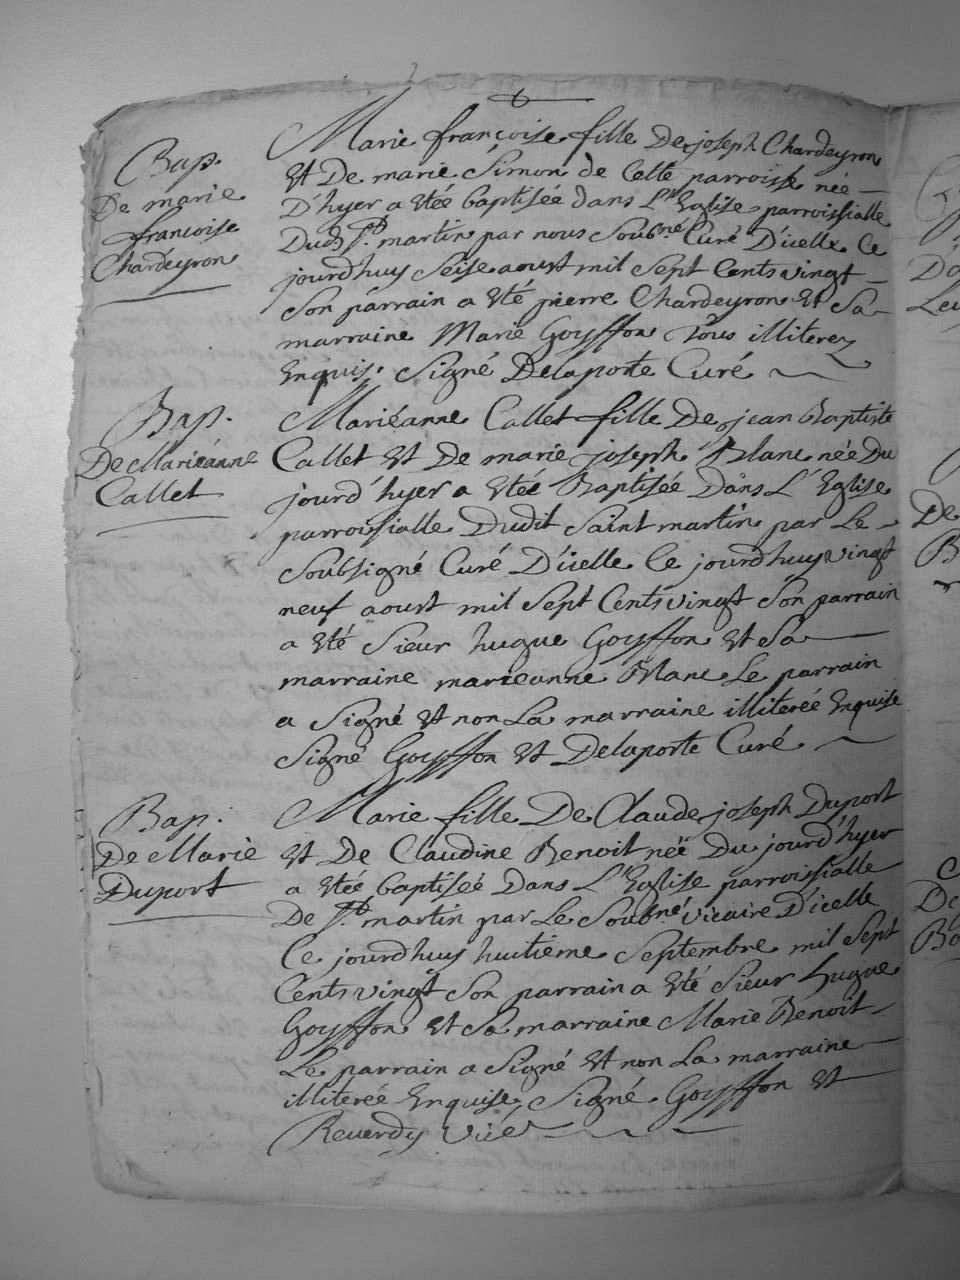 Bap.
De marie
francoise
Chardeyron
Marie françoise fille De joseph Chardeyron
Et De marie Simon de Cette parroisse née
D'hyer a Etée baptisée dans L'Eglise parroissialle
Dud. St. martin par nous Soubné. Curé D'icelle Ce
jourd'huy Seise aoust mil Sept Cents vingt
Son parrain a Eté pierre Chardeyron Et Sa
marraine Marie Goyffon Tous illiterez
Enquis. Signé Delaporte Curé
Bap.
De Marieanne
Callet
Marieanne Callet fille De jean Baptiste
Callet Et De marie joseph Blanc née Du
jourd'hyer a Etée Baptisée Dans L'Eglise
parroissialle Dudit Saint martin par Le
Soubsigné Curé D'icelle Ce jourdhuy vingt
neuf aoust mil Sept Cents vingt Son parrain
a Eté Sieur hugue Goyffon Et Sa
marraine marieanne Blanc Le parrain
a Signé Et non La marraine illiterée Enquise
Signé Goyffon Et Delaporte Curé
Bap.
De Marie
Duport
Marie fille De Claude joseph Duport
Et De Claudine Benoit née Du jourd'hyer
a Etée baptiseé Dans L'Eglise parroissialle
De St. martin par Le Soubné. vicaire D'icelle
Ce jourdhuy huitiême Septembre mil Sept
Cents vingt Son parrain a Eté Sieur hugue
Goyffon Et Sa marraine Marie Benoit
Le parrain a Signé Et non La marraine
illiterée Enquise, Signé Goyffon Et
Reverdy vic